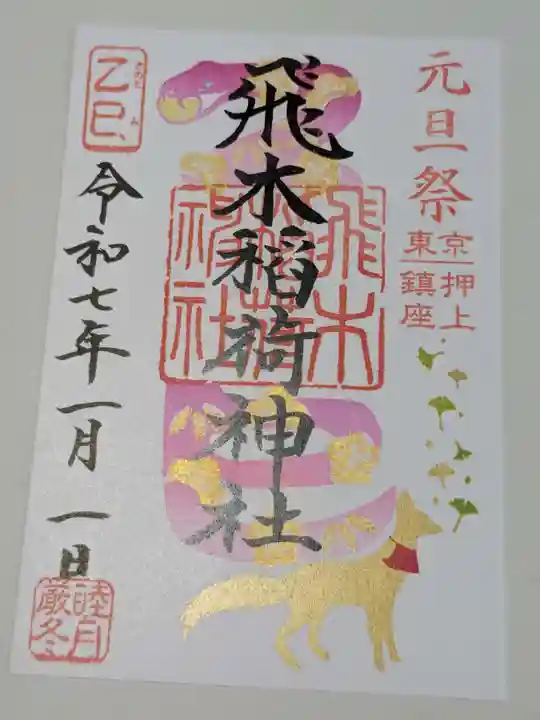 元旦祭
東京押上鎮座
飛木稲荷神社
飛木稲荷神社
乙巳
きのと み
令和七年一月一日
睦月
厳冬